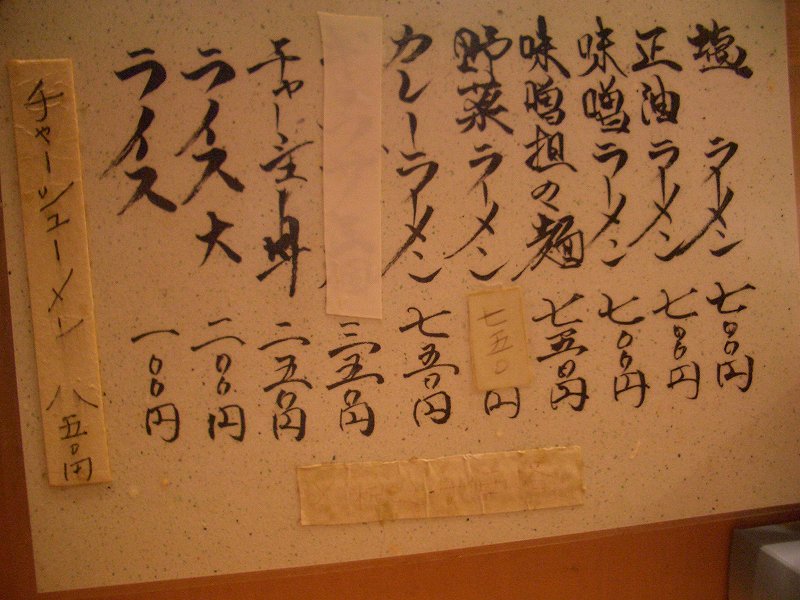 塩ラーメン 七〇〇円
正油ラーメン 七〇〇円
味噌ラーメン 七〇〇円
味噌担の麺 七五〇円
野菜ラーメン 七五〇円
カレーラーメン 七五〇円
三五〇円
チャー 二五〇円
ライス大 二〇〇円
ライス 一〇〇円
チャーシューメン 八五〇円